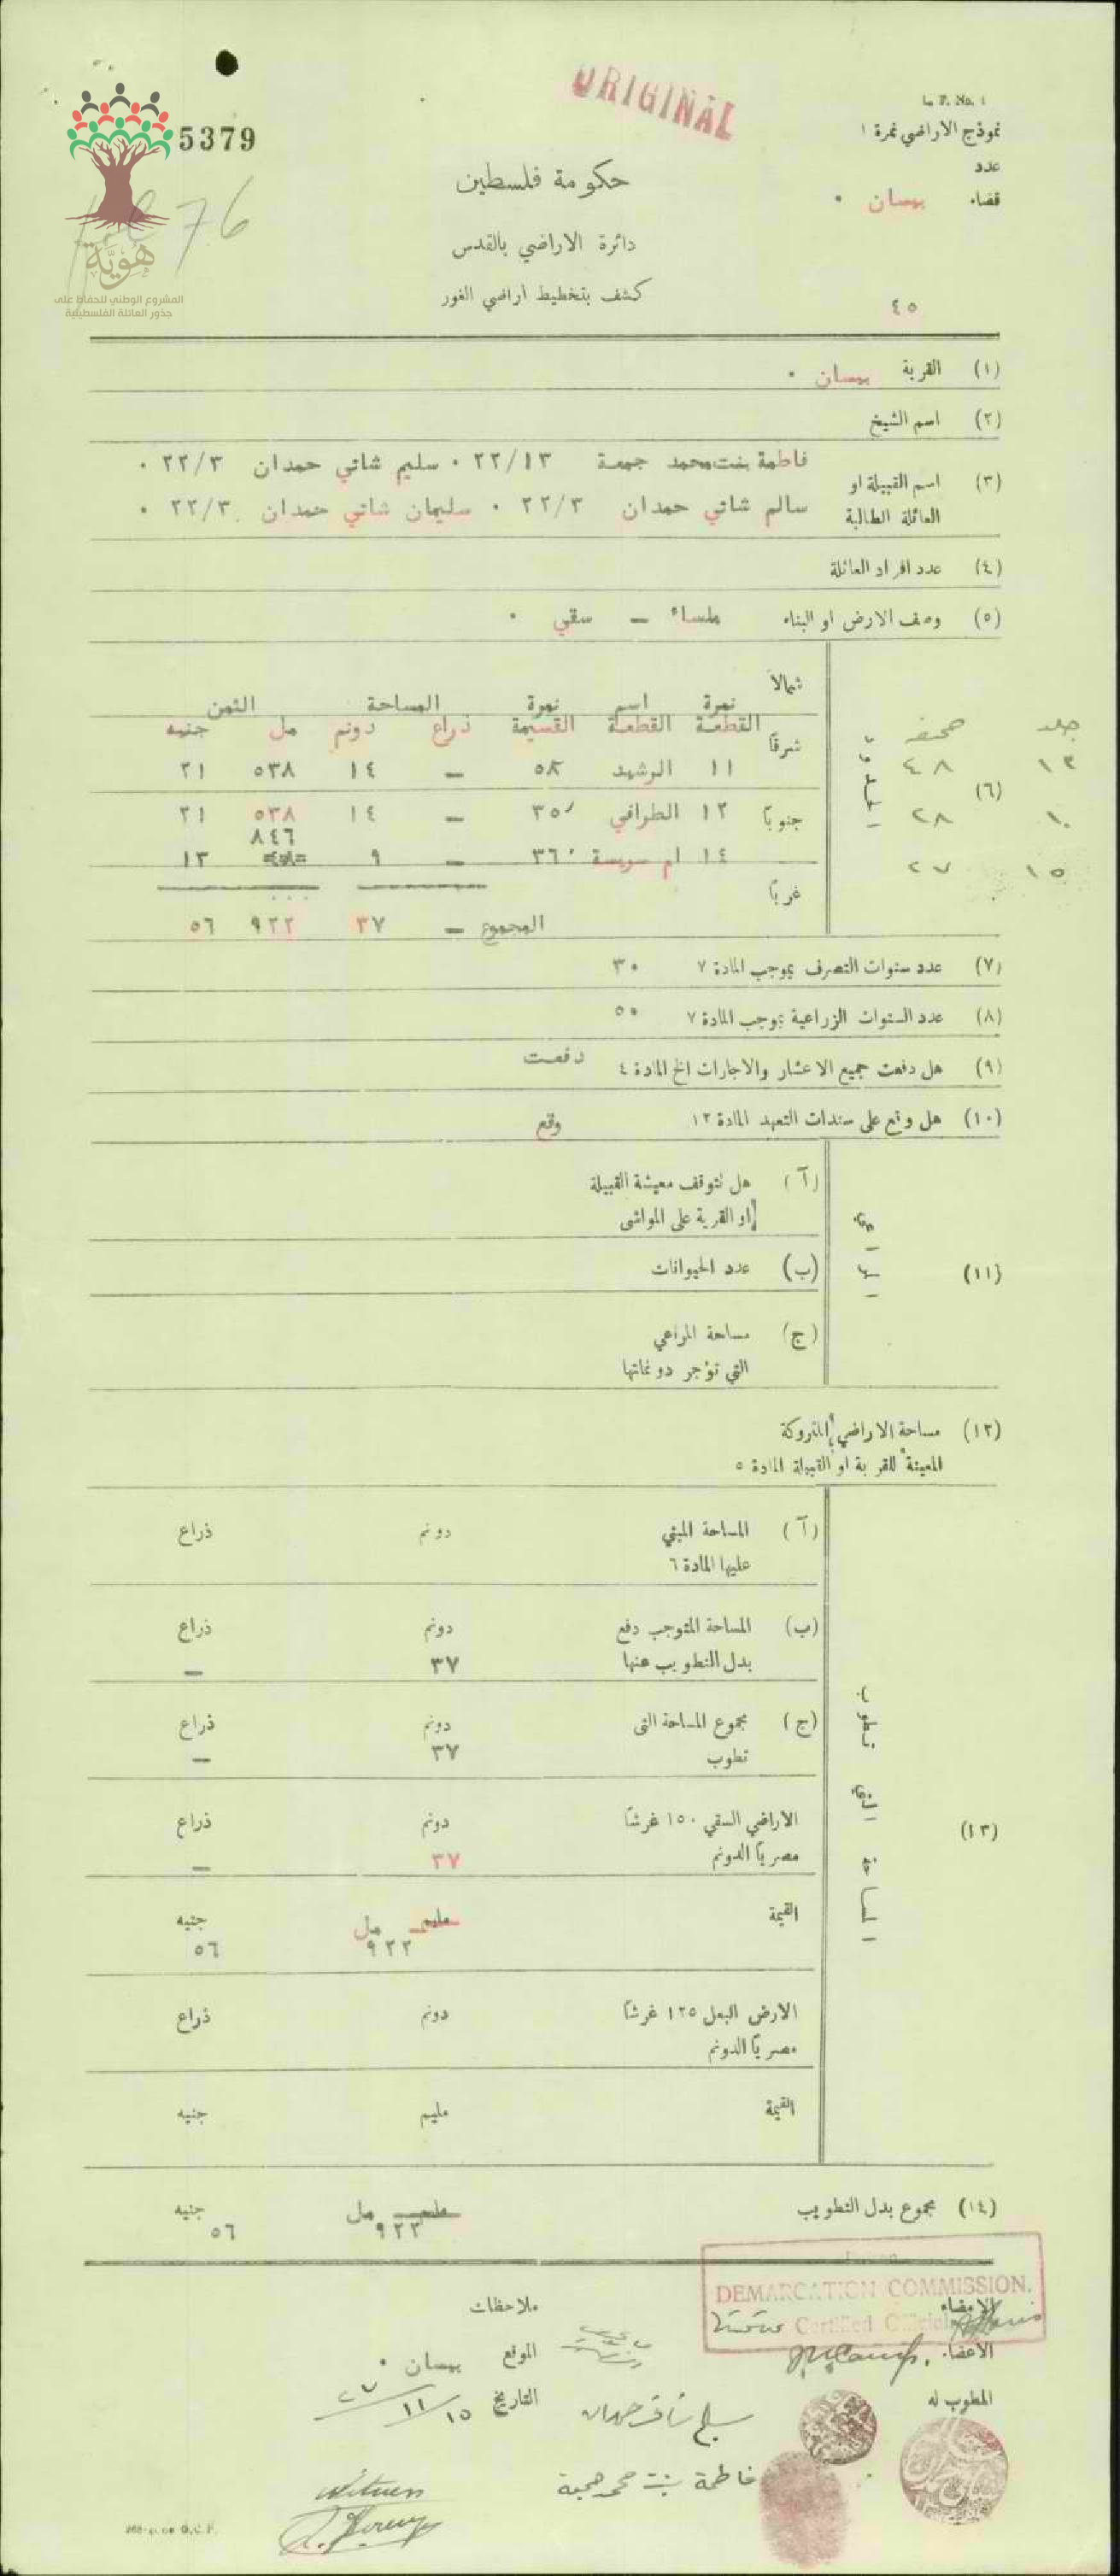 ORIGINAL
L. F. No. 1
نموذج الاراضي نمرة ١
5379
عدد
قضاء بيسان ٠
حكومة فلسطين
76
دائرة الاراضي بالقدس
هُوِيَّة
المشروع الوطني للحفاظ على
جذور العائلة الفلسطينية
كشف بتخطيط اراضي الغور
٤٥
(١) القرية بيسان ٠
(٢) اسم الشيخ
فاطمة بنت محمد جمعة ٢٢/١٣ ٠ سليم شاتي حمدان ٢٢/٣ ٠
(٣) اسم القبيلة او
العائلة الطالبة
سالم شاتي حمدان ٢٢/٣ ٠ سليمان شاتي حمدان ٢٢/٣ ٠
(٤) عدد افراد العائلة
(٥) وصف الارض او البناء ملساء – سقي ٠
(٦) الحدود
شمالاً
شرقاً
جنوباً
غرباً
نمرة اسم نمرة المساحة الثمن
القطعة القطعة القسيمة ذراع دونم مل جنيه
١١ الرشيد ٥٨ – ١٤ ٥٣٨ ٢١
١٢ الطرافي ٣٥ – ١٤ ٥٣٨ ٢١
٨٤٦
١٤ ام سريسة ٣٦ – ٩ ١٣
المجموع – ٣٧ ٩٢٢ ٥٦
جلد صحيفة
١٣ ٤٨
١٠ ٢٨
١٥ ٢٧
(٧) عدد سنوات التصرف بموجب المادة ٧ ٣٠
(٨) عدد السنوات الزراعية بموجب المادة ٧ ٥٠
(٩) هل دفعت جميع الاعشار والاجارات الخ المادة ٤ دفعت
(١٠) هل وقع على سندات التعهد المادة ١٢ وقع
(١١) المراعي
(آ) هل تتوقف معيشة القبيلة
او القرية على المواشي
(ب) عدد الحيوانات
(ج) مساحة المراعي
التي تؤجر دونماتها
(١٢) مساحة الاراضي المتروكة
المعينة للقرية او القبيلة المادة ٥
(١٣) المساحة التي تطوب
(آ) المساحة المبني دونم ذراع
عليها المادة ٦
(ب) المساحة المتوجب دفع دونم ذراع
بدل التطويب عنها ٣٧ –
(ج) مجموع المساحة التي دونم ذراع
تطوب ٣٧ –
الاراضي السقي ١٥٠ غرشاً دونم ذراع
مصرياً الدونم ٣٧ –
القيمة مليم مل جنيه
٩٢٢ ٥٦
الارض البعل ١٢٥ غرشاً دونم ذراع
مصرياً الدونم
القيمة مليم جنيه
(١٤) مجموع بدل التطويب مليم مل جنيه
٩٢٢ ٥٦
DEMARCATION COMMISSION.
Certified Official
الامضاء
ملاحظات
الاعضاء
الموقع بيسان ٠
المطوب له
التاريخ ١٥/١١/٢٧
سليم شاتي حمدان
فاطمة بنت محمد جمعة
Witness